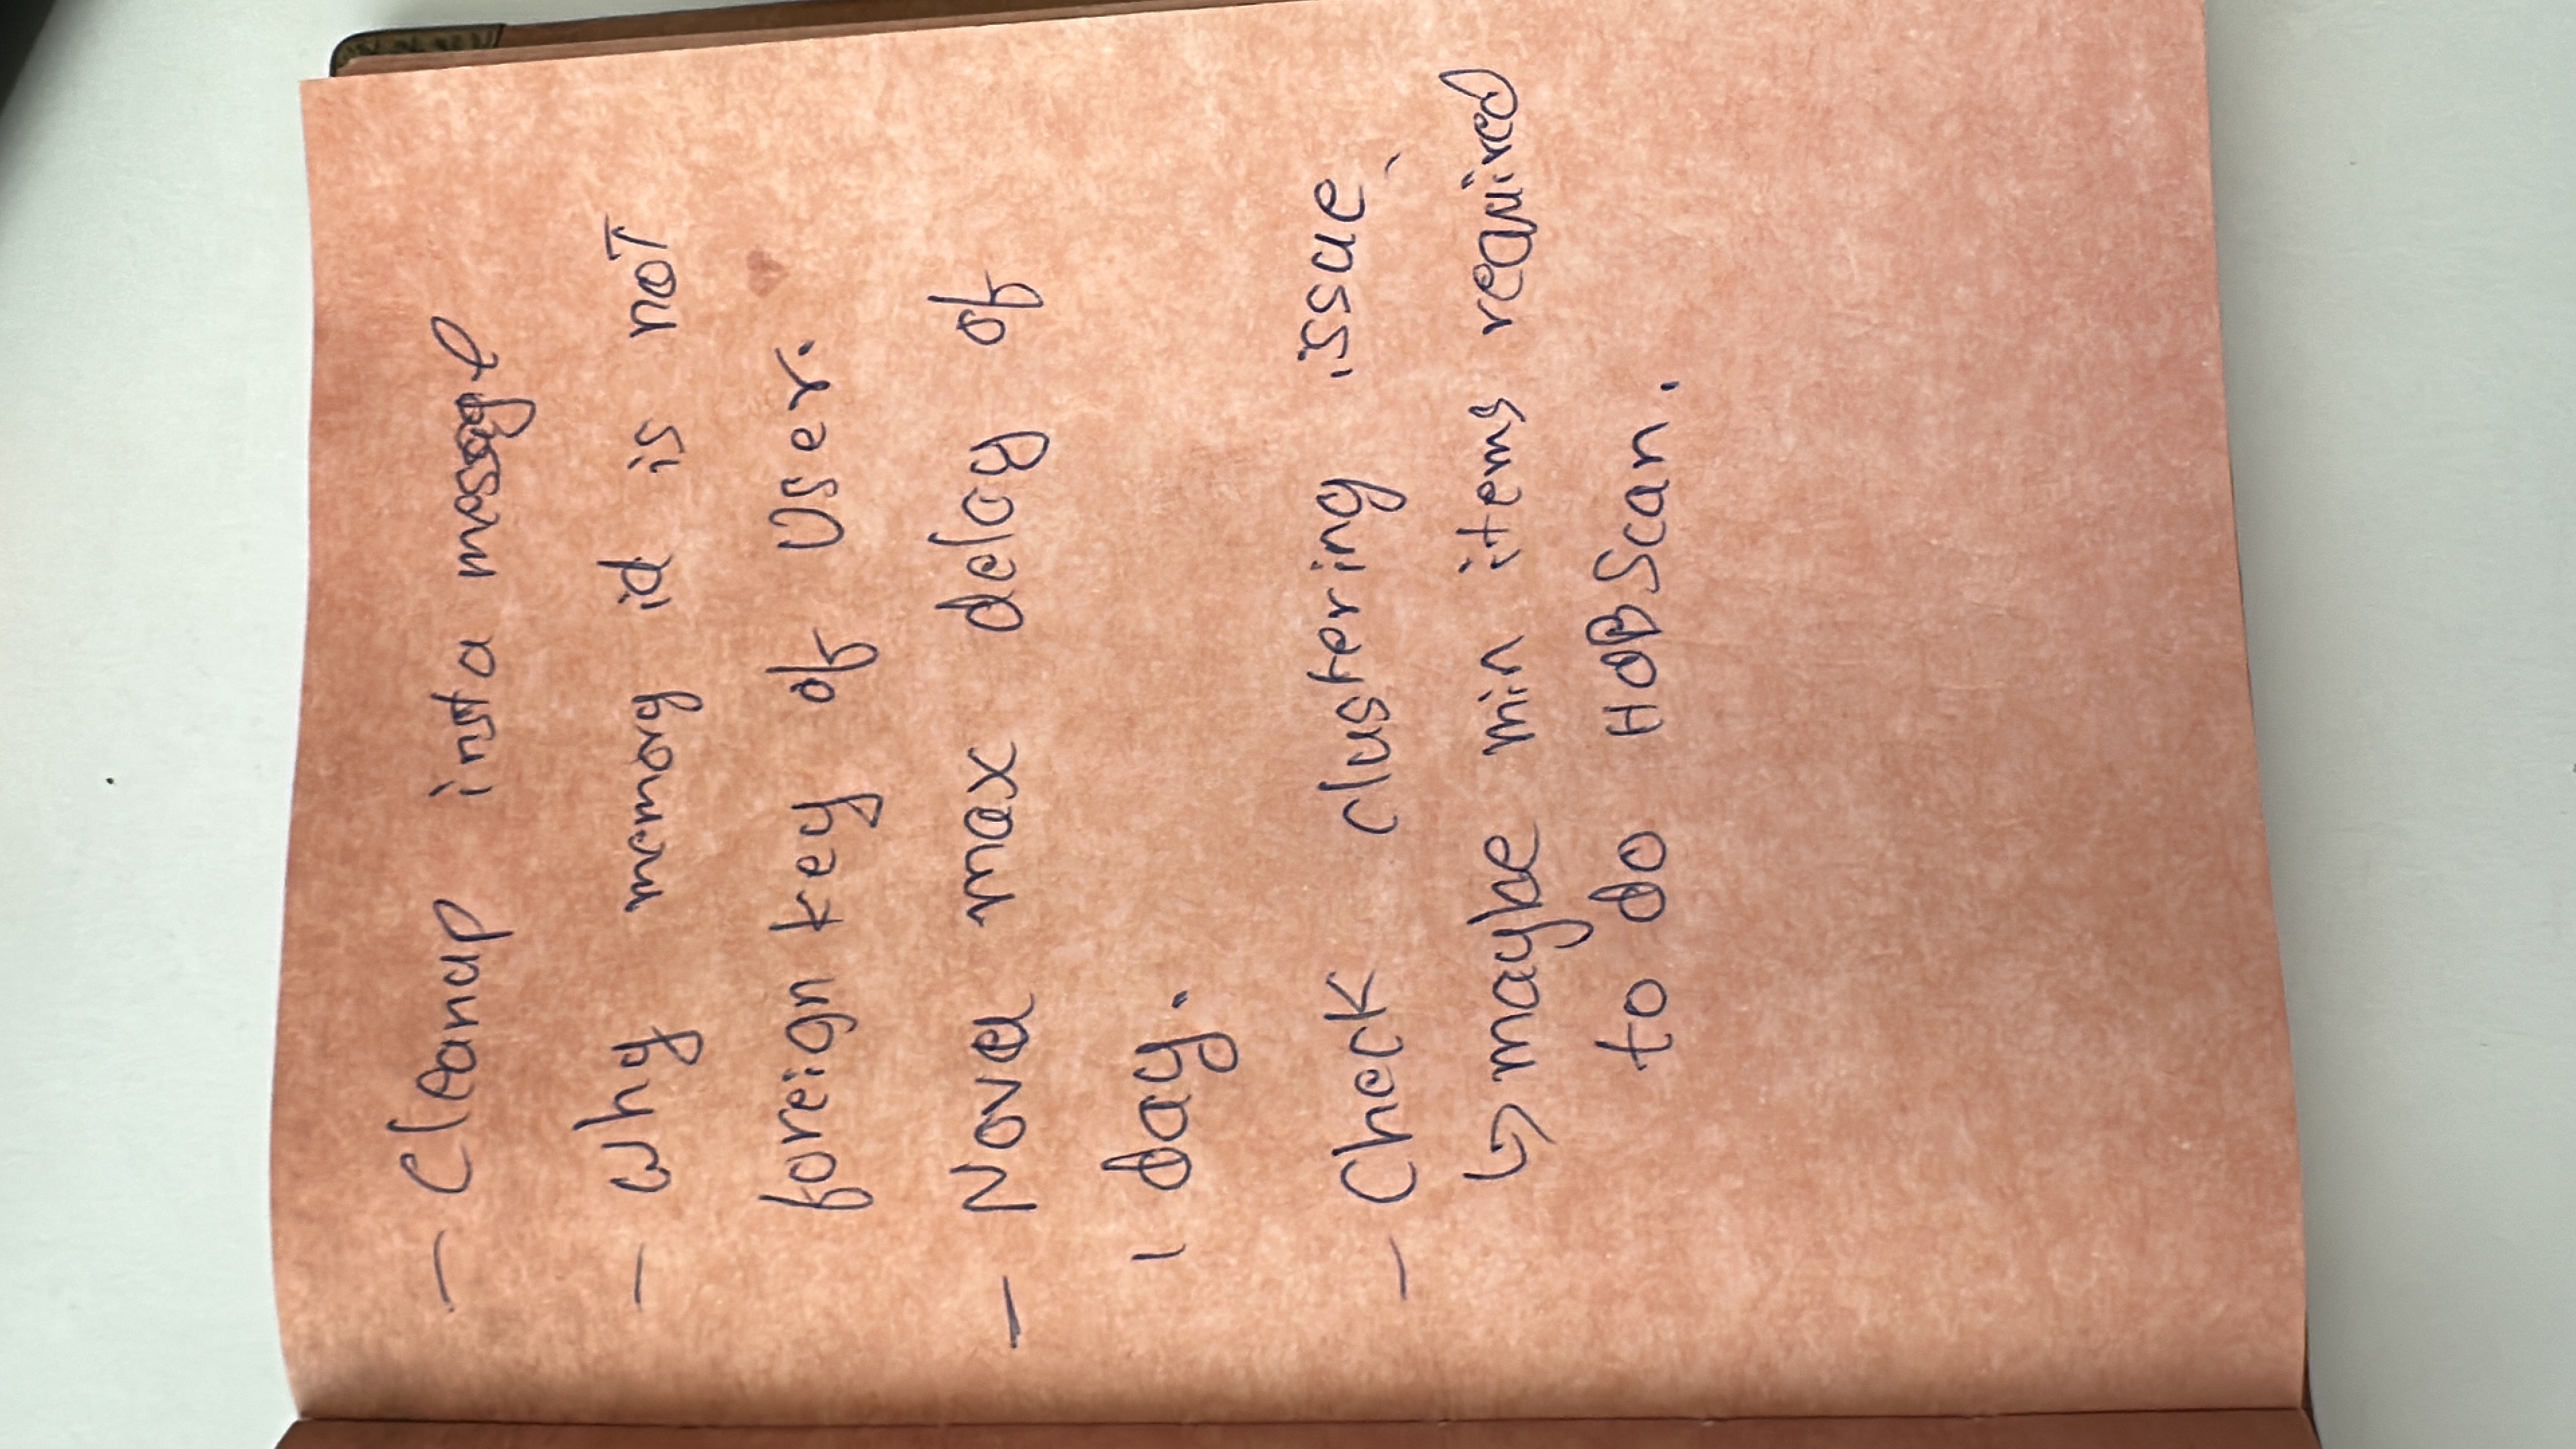 - Cleanup insta message
- why memory id is not
foreign key of User.
- Nova max delay of
1 day.
- Check clustering issue
↳ maybe min items required
to do HDBScan.